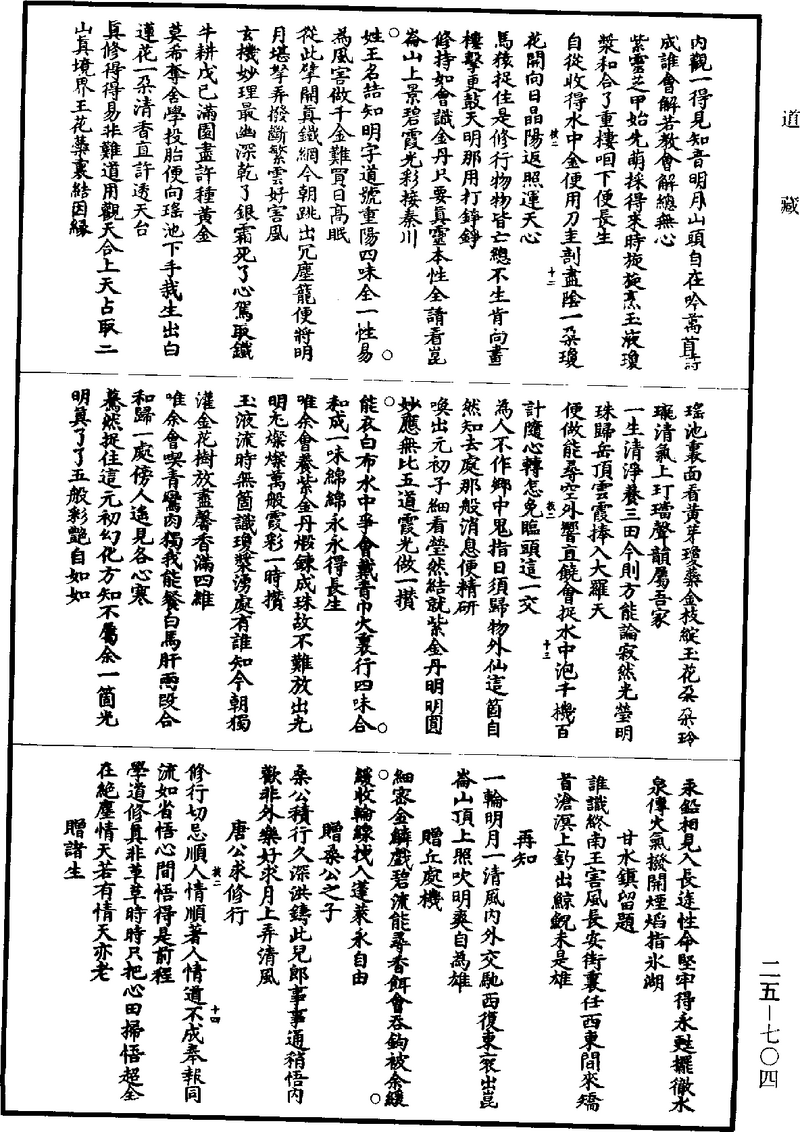 道藏
內觀一得見知音明月山頭自在吟萬首詩
成誰會解若教會解總無心
紫雲芝甲始先萌採得來時旋旋烹玉液瓊
漿和合了重樓咽下便長生
自從收得水中金便用刀圭剖盡陰一朵瓊
花開向日晶陽返照運天心
馬猿捉住是修行物物皆亡總不生肯向畫
樓擊更鼓天明那用打錚錚
修持如會識金丹只要真靈本性全請看崑
崙山上景碧霞光彩接秦川
姓王名喆知明字道號重陽四味全一性易
為風害做千金難買日高眠
從此擘開真鐵網今朝跳出冗塵籠便將明
月堪擎弄撥斷繁雲好害風
玄機妙理最幽深乾了銀霜死了心駕取鐵
牛耕戊己滿園盡許種黃金
莫希奪舍學投胎便向瑤池下手栽生出白
蓮花一朵清香直許透天台
真修得得易非難道用觀天合上天占取二
山真境界玉花蘂裏結因緣
瑤池裏面看黃芽瓊蘂金枝綻玉花朵朵玲
瓏清氣上玎璫聲韻屬吾家
一生清淨養三田今則方能論寂然光瑩明
珠歸岳頂雲霞捧入大羅天
便做能尋空外響直饒會捉水中泡千機百
計隨心轉怎免臨頭這一交
為人不作鄉中鬼指日須歸物外仙這箇自
然知去處那般消息便精研
喚出元初子細看瑩然結就紫金丹明明圓
妙應無比五道霞光做一攢
能衣白布水中爭會戴青巾火裏行四味合
和成一味綿綿永永得長生
唯余會養紫金丹煅鍊成珠故不難放出光
明尤燦燦萬般霞彩一時攢
玉液流時無箇識瓊漿湧處有誰知今朝獨
灌金花樹放盡馨香滿四維
唯余會喫青鸞肉獨我能餐白馬肝兩段合
和歸一處傍人遙見各心寒
驀然捉住這元初幻化方知不屬余一箇光
明真了了五般彩艷自如如
汞鉛相見入長途性命堅牢得永甦擺撤水
泉傳火氣撥開煙焰指氷湖
甘水鎮留題
誰識終南王害風長安街裏任西東閒來矯
首滄溟上釣出鯨鯢未是雄
再知
一輪明月一清風內外交馳西復東衮出崑
崙山頂上照吹明爽自為雄
贈丘處機
細密金鱗戲碧流能尋香餌會吞鉤被余緩
緩收輪線拽入蓬萊永自由
贈桑公之子
桑公積行久深洪鑄此兒郎事事通稍悟內
歡非外樂好求月上弄清風
唐公求修行
修行切忌順人情順著人情道不成奉報同
流如省悟心間悟得是前程
學道修真非草草時時只把心田掃悟超全
在絕塵情天若有情天亦老
贈諸生
二五—七〇四